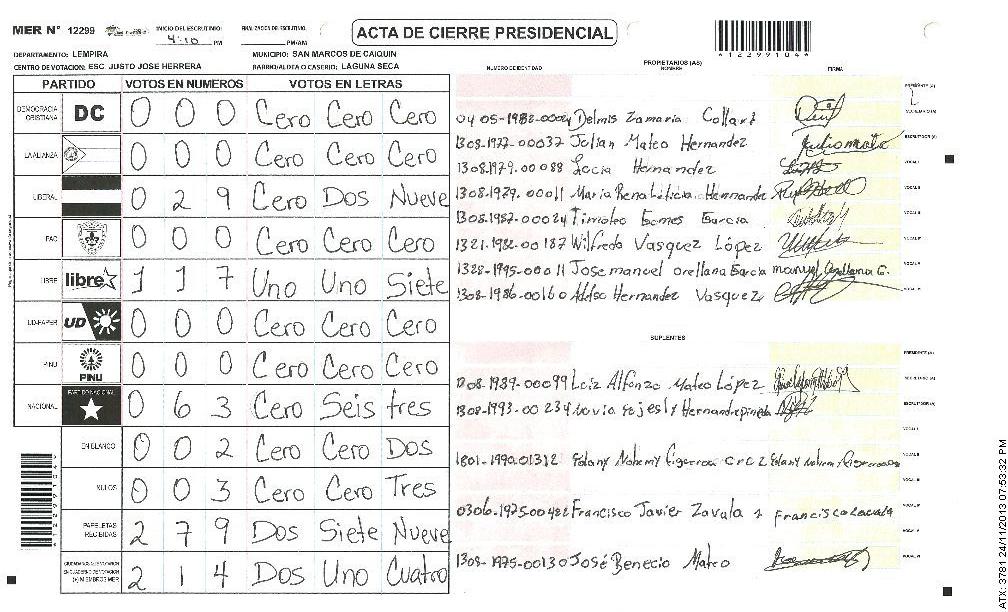 MER N° 12299 INICIO DEL ESCRUTINIO: 4:10 PM FINALIZACION DEL ESCRUTINIO: PM/AM ACTA DE CIERRE PRESIDENCIAL
*12399104*
DEPARTAMENTO: LEMPIRA MUNICIPIO: SAN MARCOS DE CAIQUIN
CENTRO DE VOTACION: ESC JUSTO JOSE HERRERA BARRIO/ALDEA O CASERIO: LAGUNA SECA
PARTIDO VOTOS EN NUMEROS VOTOS EN LETRAS
DEMOCRACIA CRISTIANA DC 0 0 0 Cero Cero Cero
LA ALIANZA 0 0 0 Cero Cero Cero
LIBERAL 0 2 9 Cero Dos Nueve
PAC 0 0 0 Cero Cero Cero
LIBRE libre 1 1 7 Uno Uno Siete
UD-FAPER UD 0 0 0 Cero Cero Cero
PINU PINU 0 0 0 Cero Cero Cero
NACIONAL PARTIDO NACIONAL 0 6 3 Cero Seis tres
EN BLANCO 0 0 2 Cero Cero Dos
NULOS 0 0 3 Cero Cero Tres
PAPELETAS RECIBIDAS 2 7 9 Dos Siete Nueve
2 1 4 Dos Uno Cuatro
PROPIETARIOS (AS)
NUMERO DE IDENTIDAD NOMBRE FIRMA
0405-1982-00024 Delmis Zamaria Collart
1308-1977-00037 Julian Mateo Hernandez
1308-1979-00088 Lucia Hernandez
1308-1979-00011 Maria Rena Leticia Hernande
1308-1987-00024 Timoteo Gomes Garcia
1321-1982-00187 Wilfredo Vasquez López
1328-1995-00011 Jose manuel orellana Garcia manuel Orellana G.
1308-1986-00160 Hernandez Vasquez
SUPLENTES
1308-1989-00099 Luiz Alfonzo Mateo López
1308-1993-00234
1801-1990-01312 Yolany Nohemy Figueroa Cruz
0306-1975-00422 Francisco Javier Zavala Francisco Zavala
1308-1975-00130 José Benecio Mateo
PRESIDENTE (A)
SECRETARIO (A)
ESCRUTADOR (A)
VOCAL I
VOCAL II
VOCAL III
VOCAL IV
VOCAL V
ATX: 3781 24/11/2013 07:53:32 PM